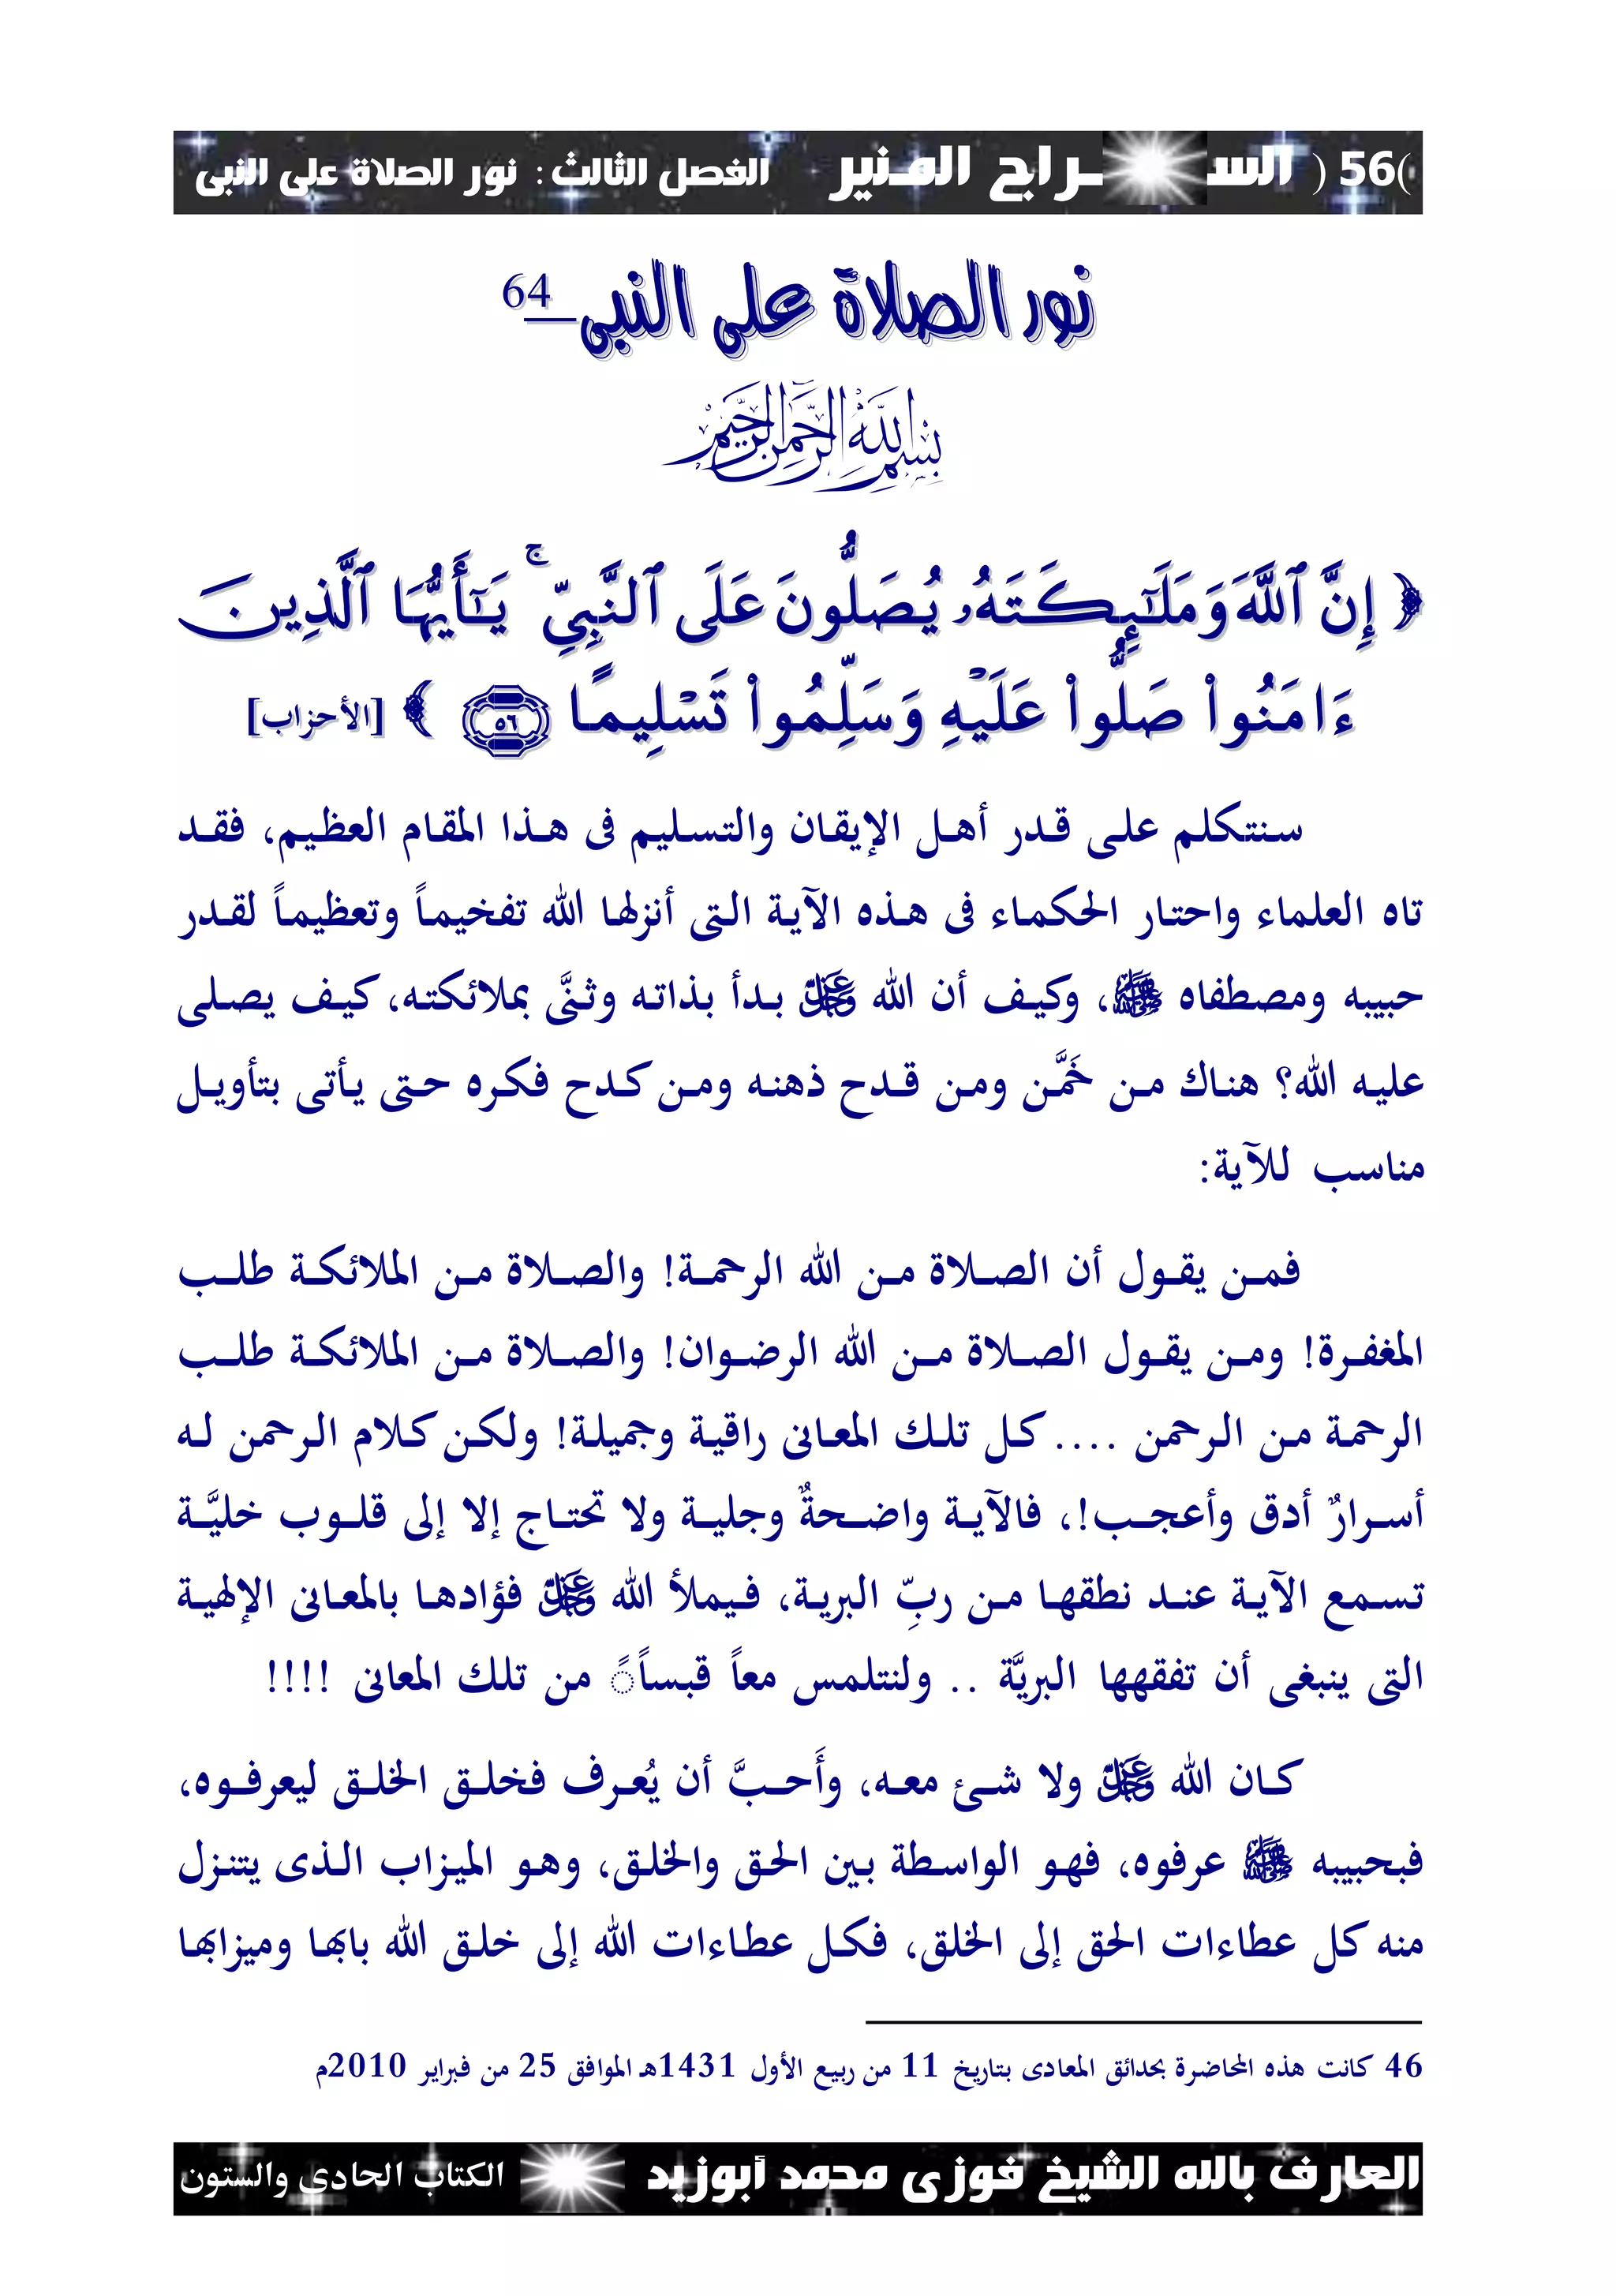 (56) الســراج المـنير الفصل الثالث: نور الصلاة على النبى
نور الصلاة على النبى 64
بِسْمِ اللَّهِ الرَّحْمَٰنِ الرَّحِيمِ
﴿ إِنَّ ٱللَّهَ وَمَلَـٰٓئِكَتَهُۥ يُصَلُّونَ عَلَى ٱلنَّبِىِّ ۚ يَـٰٓأَيُّهَا ٱلَّذِينَ
ءَامَنُوا۟ صَلُّوا۟ عَلَيْهِ وَسَلِّمُوا۟ تَسْلِيمًا ٥٦ ﴾ [الأحزاب]
سنتكلم على قدر أهل الإيقان والتسليم فى هذا المقام العظيم، فقد
تاه العلماء واحتار الحكماء فى هذه الآية التى أنزلها الله تفخيماً وتعظيماً لقدر
حبيبه ومصطفاه ﷺ، وكيف أن الله عز وجل بدأ بذاته وثنَّى بملائكته، كيف يصلى
عليه الله؟ هناك من خَمَّن ومن قدح ذهنه ومن كدح فكره حتى يأتى بتأويل
مناسب للآية:
فمن يقول أن الصلاة من الله الرحمة! والصلاة من الملائكة طلب
المغفرة! ومن يقول الصلاة من الله الرضوان! والصلاة من الملائكة طلب
الرحمة من الرحمن .... كل تلك المعانى راقية وجميلة! ولكن كلام الرحمن له
أسرارٌ أدق وأعجب!، فالآية واضحةٌ وجلية ولا تحتاج إلا إلى قلوب خليَّة
تسمع الآية عند نطقها من ربِّ البرية، فيملأ الله عز وجل فؤادها بالمعانى الإلهية
التى ينبغى أن تفقهها البريَّة .. ولنتلمس معاً قبساً ً من تلك المعانى !!!!
كان الله عز وجل ولا شئ معه، وأَحبَّ أن يُعرف فخلق الخلق ليعرفوه،
فبحبيبه ﷺ عرفوه، فهو الواسطة بين الحق والخلق، وهو الميزاب الذى يتنزل
منه كل عطاءات الحق إلى الخلق، فكل عطاءات الله إلى خلق الله بابها وميزابها
46 كانت هذه المحاضرة بحدائق المعادى بتاريخ 11 من ربيع الأول 1431هـ الموافق 25 من فبراير 2010م
العارف بالله الشيخ فوزى محمد أبوزيد الكتاب الحادى والستون